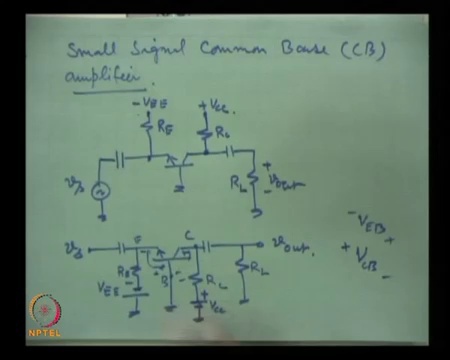 Small Signal Common Base (CB)
amplifier.
- VEE + VCC
RE RC
vs RL + vout -
vs E C vout.
RE B RC RL
VEE + VCC
- VEB +
+ VCB -
NPTEL